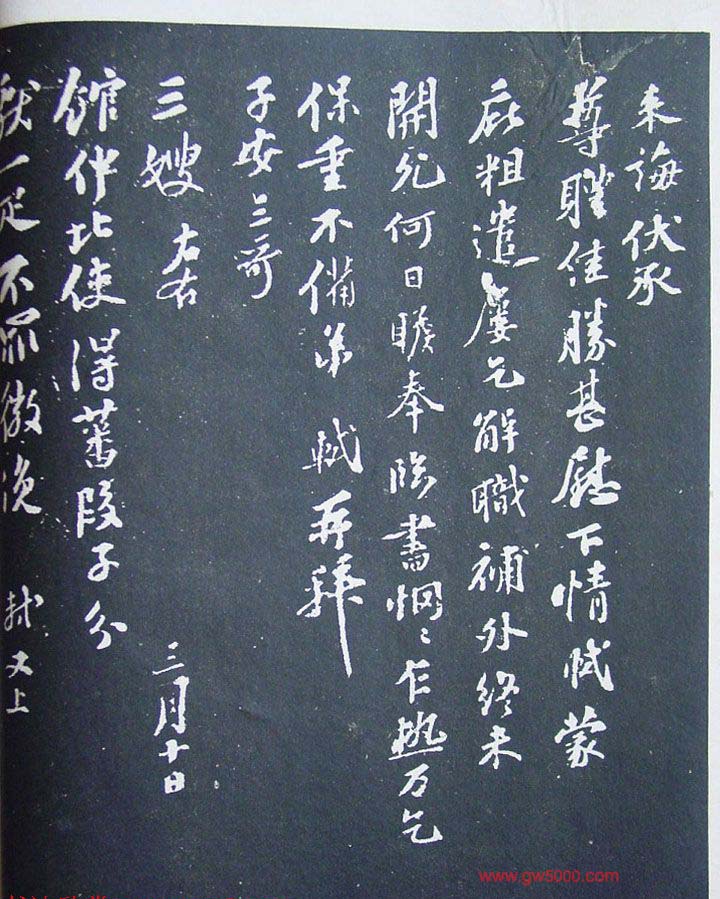 來誨伏承
尊體佳勝甚慰下情軾蒙
庇粗遣屢乞解職補外終未
開允何日瞻奉臨書惘〻乍熱万乞
保重不備弟 軾再拜
子安三哥
三嫂 左右 三月十日
館伴北使得蕃段子分
獻一疋不罪微浼 軾又上
www.gw5000.com